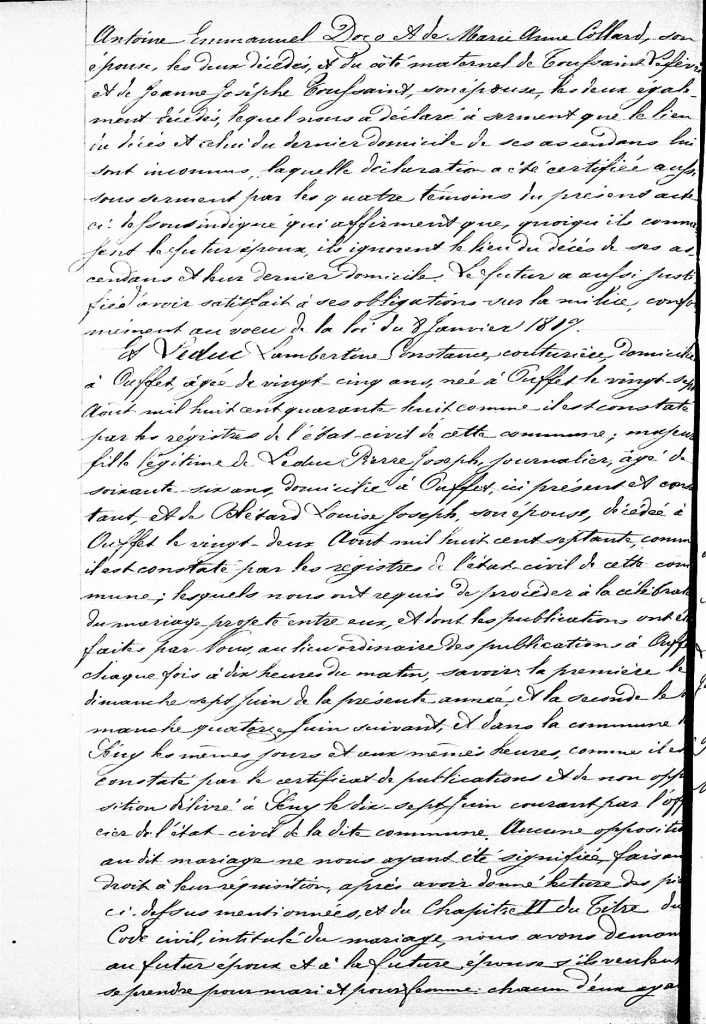 Antoine Emmanuel Doco et de Marie Anne Collard, son
épouse, les deux décédés, et du côté maternel de Toussaint Lefèvre
et de Jeanne Josèphe Toussaint, son épouse, les deux égale-
ment décédés, lequel nous a déclaré à serment que le lieu
du décès et celui du dernier domicile de ses ascendans lui
sont inconnus, laquelle déclaration a été certifiée aussi
sous serment par les quatre témoins du présent acte
ci-dessous indiqué qui affirment que, quoiqu'ils connais
sent le futur époux, ils ignorent le lieu du décès de ses as-
cendans et leur dernier domicile. Le futur a aussi justi
fié d'avoir satisfait à ses obligations sur la milice, confor
mément au voeu de la loi du 8 Janvier 1817.
Et Leduc Lambertine Constance, couturière, domiciliée
à Ouffet, âgée de vingt-cinq ans, née à Ouffet le vingt-sept
Août mil huit cent quarante huit comme il est constaté
par les régistres de l'état-civil de cette commune; majeure
fille légitime de Leduc Pierre Joseph, journalier, âgé de
soixante-six ans, domicilié à Ouffet, ici présent et consen
tant, et de Blétard Louise Joseph, son épouse, décédée à
Ouffet le vingt-deux Août mil huit cent septante, comme
il est constaté par les régistres de l'état-civil de cette com
mune; lesquels nous ont requis de procéder à la célébration
du mariage projeté entre eux, et dont les publications ont été
faites par Nous, au lieu ordinaire des publications à Ouffet
chaque fois à dix heures du matin, savoir: la première le
dimanche sept Juin de la présente année, et la seconde le di
manche quatorze Juin suivant, et dans la commune de
Seny les mêmes jours et aux mêmes heures, comme il est
constaté par le certificat de publications et de non oppo
sition délivré à Seny le dix-sept Juin courant par l'offi
cier de l'état-civil de la dite commune. Aucune opposition
au dit mariage ne nous ayant été signifiée, faisant
droit à leur réquisition, après avoir donné lecture des pièces
ci-dessus mentionnées, et du Chapitre VI du Titre du
Code civil, intitulé du mariage, nous avons demandé
au futur époux et à la future épouse s'ils veulent
se prendre pour mari et pour femme: chacun d'eux ayant